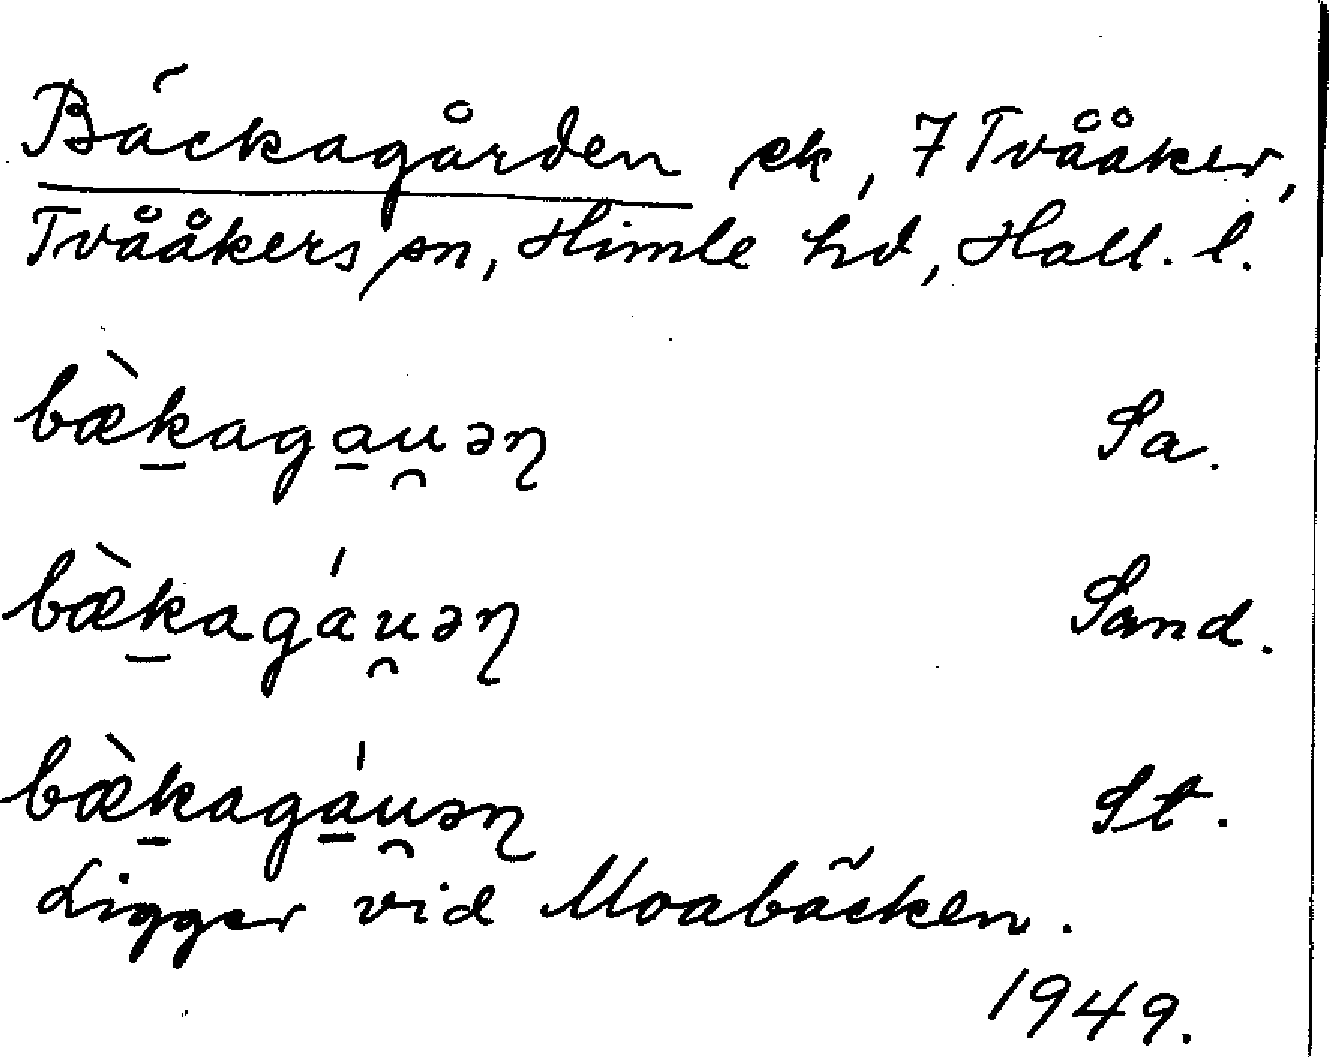 Bäckagården ek, 7 Tvååker,
Tvååkers sn, Himle hd, Hall. l.
bæ̀ḵaga̱u̯əɳ Sa.
bæ̀ḵagáu̯əɳ Sand.
bæ̀ḵagá̱u̯əɳ St.
Ligger vid Moabäcken.
1949.